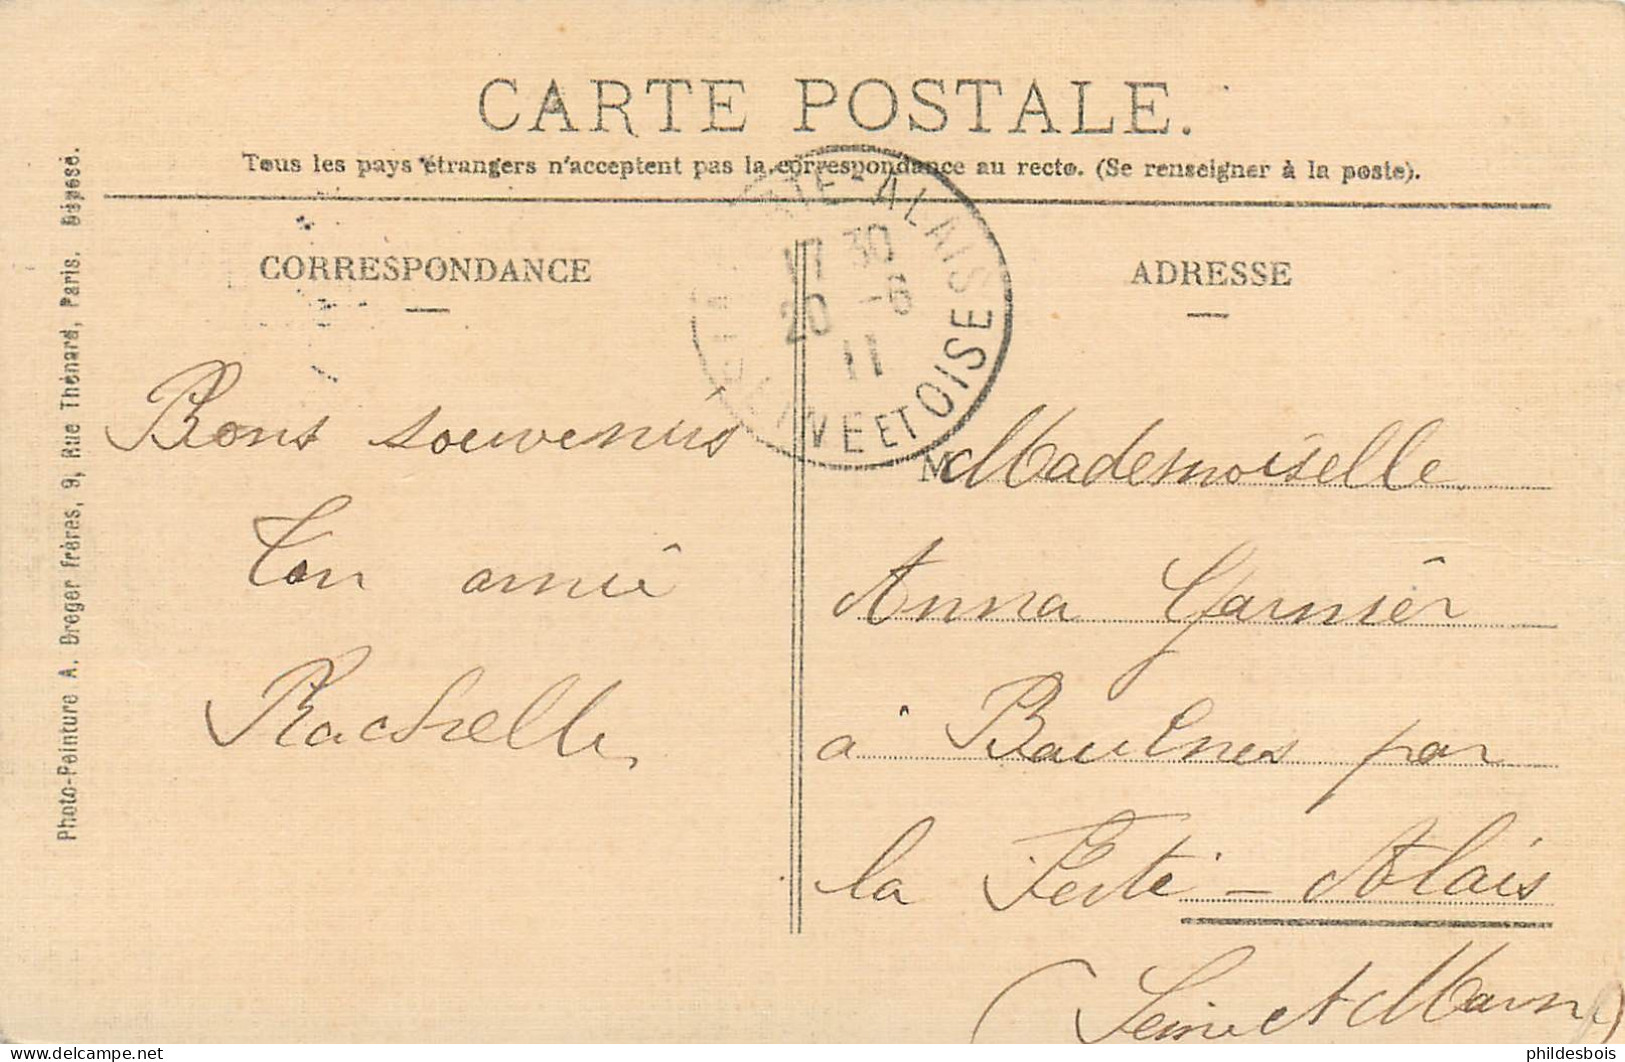 CARTE POSTALE.
Tous les pays étrangers n'acceptent pas la correspondance au recto. (Se renseigner à la poste).
CORRESPONDANCE
ADRESSE
Bons souvenirs
Ton amie
Rachelle
M Mademoiselle
Anna Garnier
à Baulnes par
la Ferté - Alais
(Seine et Marne)
RTÉ-ALAIS
17 30
20 -6
11
SEINE ET OISE
Photo-Peinture A. Breger frères, 9, Rue Thénard, Paris. Déposé.
phildesbois